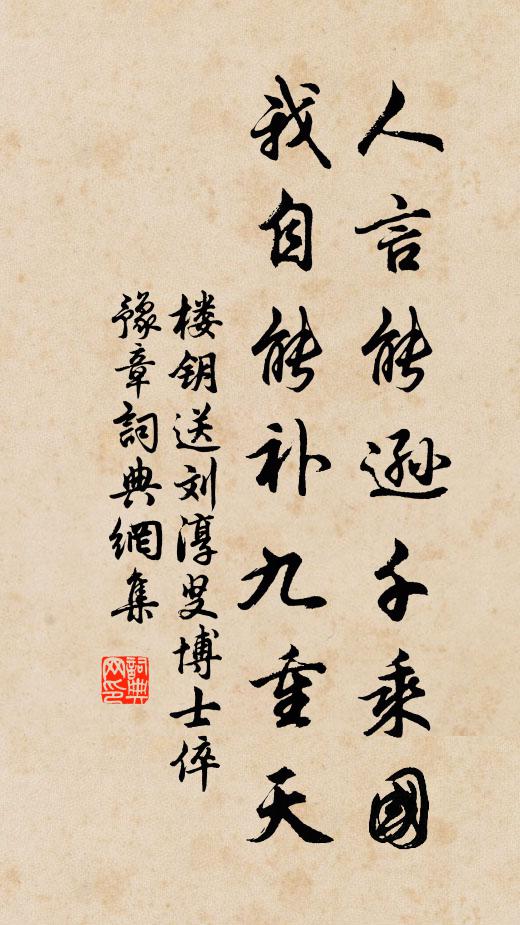 人言能逊千乘國
我自能补九重天
楼钥送刘淳叟博士倅
豫章詞典網集
詞典
网印